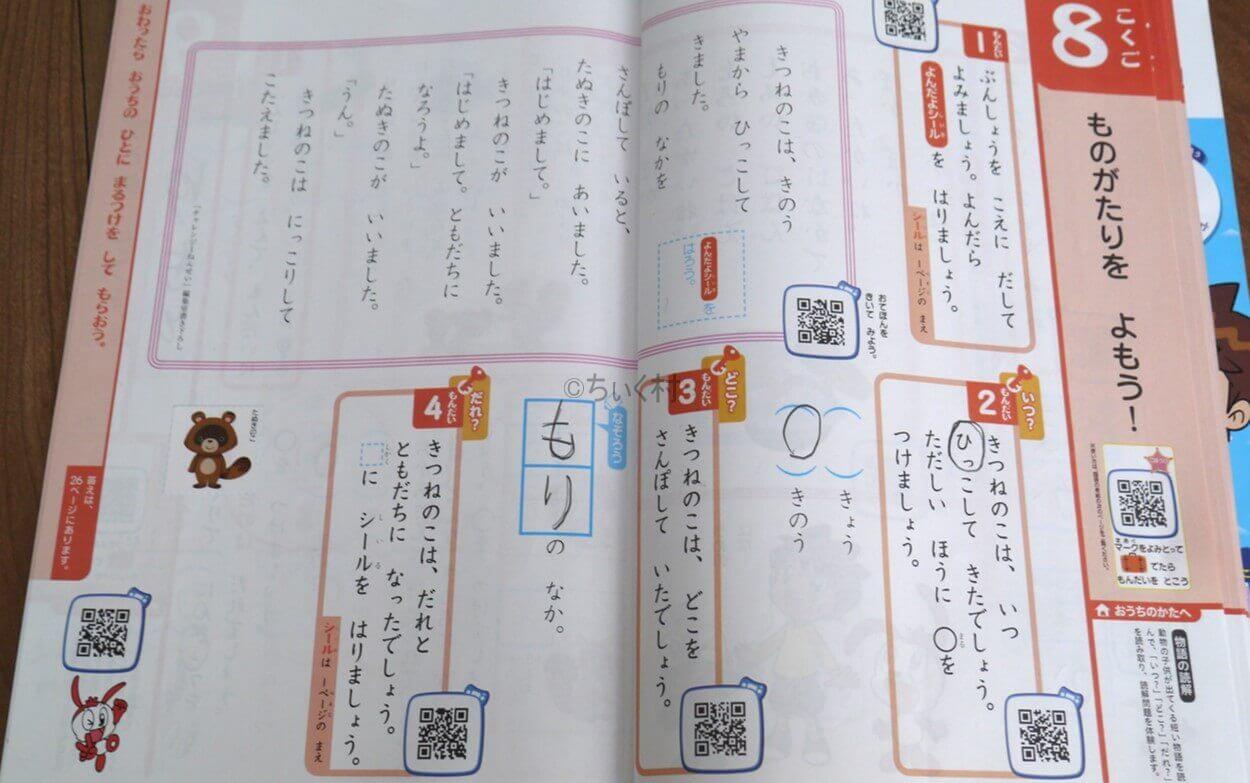 こくご
8
ものがたりを よもう！
マークをよみとって
でたら
もんだいを とこう
おうちのかたへ
物語の読解
動物の子供が出てくる短い物語を読
んで、「いつ？」「どこ？」「だれ？」
を読み取り、読解問題を体験します。
もんだい
1
ぶんしょうを こえに だして
よみましょう。よんだら
よんだよシールを はりましょう。
シールは 1ページの まえ
おてほんを
きいて みよう。
きつねのこは、きのう
やまから ひっこして
きました。
もりの なかを
さんぽして いると、
たぬきのこに あいました。
「はじめまして。」
きつねのこが いいました。
「はじめまして。ともだちに
なろうよ。」
たぬきのこが いいました。
「うん。」
きつねのこは にっこりして
こたえました。
よんだよシールを
はろう。
いつ？
もんだい
2
きつねのこは、 いつ
ひっこして きたでしょう。
ただしい ほうに ○を
つけましょう。
きょう
きのう
どこ？
もんだい
3
きつねのこは、 どこを
さんぽして いたでしょう。
なぞろう
もりの なか。
だれ？
もんだい
4
きつねのこは、だれと
ともだちに なったでしょう。
しかく
に シールを はりましょう。
シールは 1ページの まえ
たぬきのこ
おわったら おうちの ひとに まるつけを して もらおう。
答えは、
26ページにあります。
©ちいく村